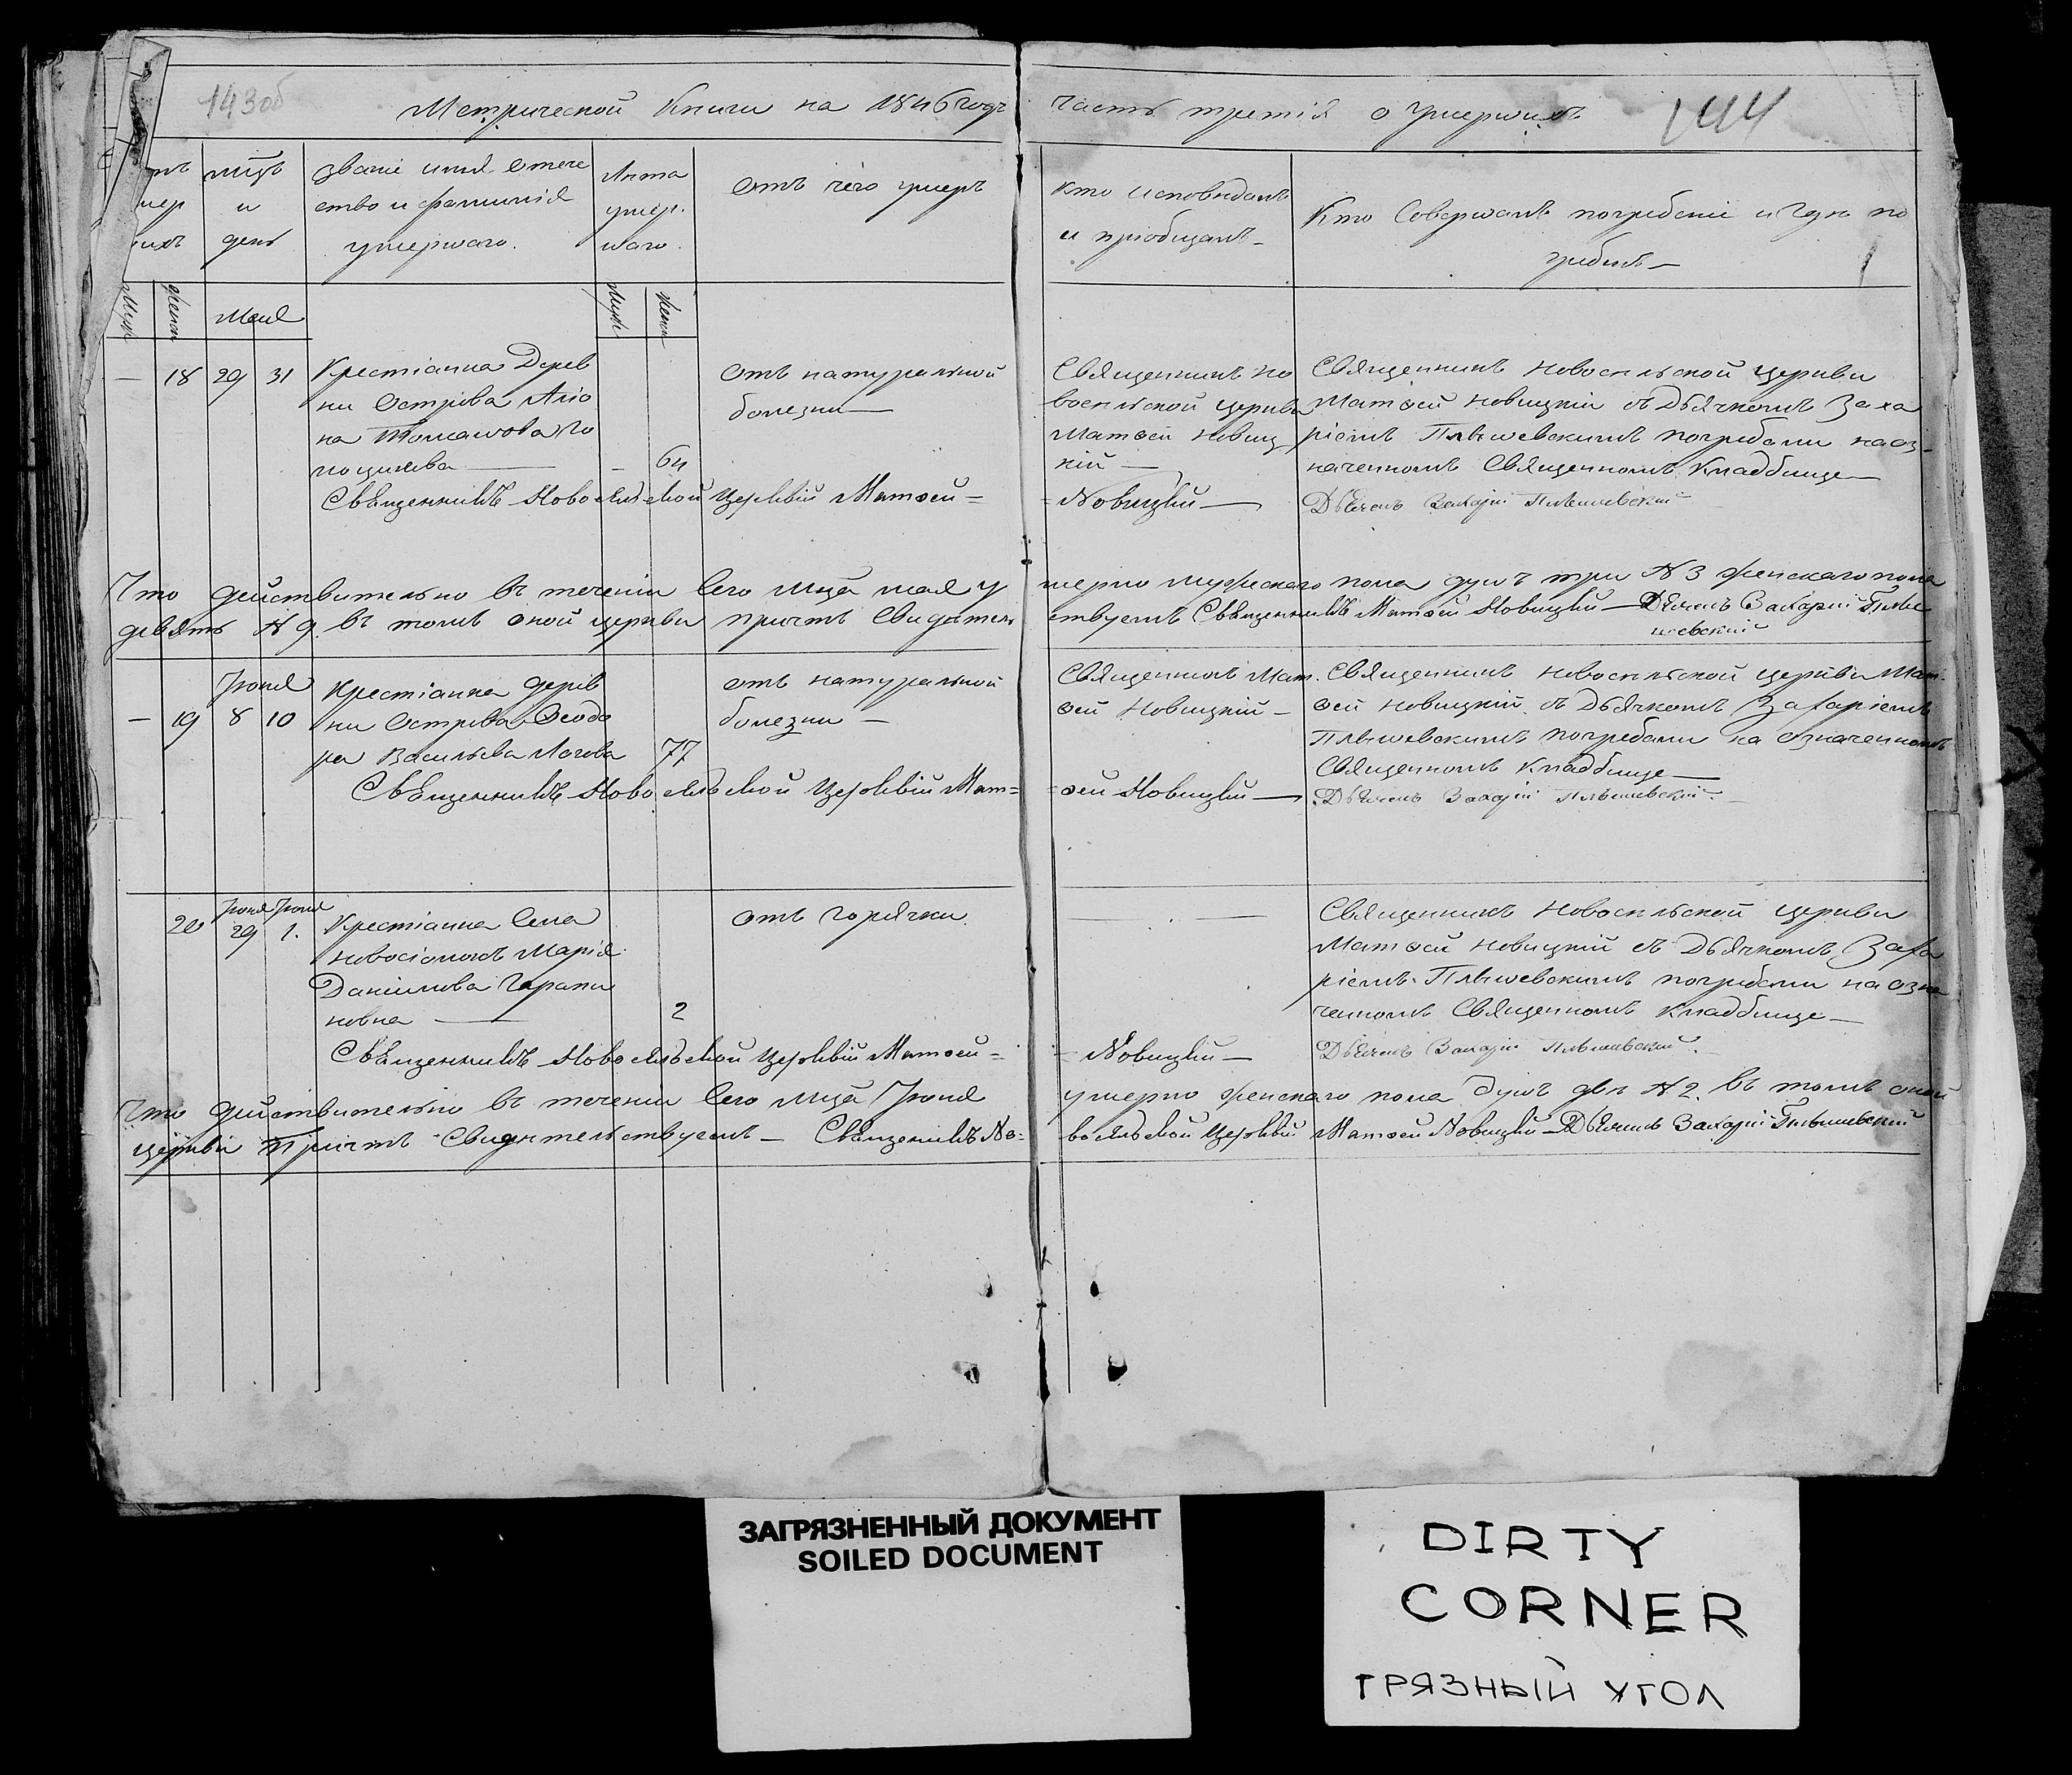 143об
Метрической Книги на 1846 годъ часть третія о умершихъ
144
мцъ и день
званіе имя отече
ство и фамилія
умершаго.
Лѣта
умер.
шаго.
отъ чего умеръ
кто исповѣдалъ
и пріобщалъ
Кто Совершалъ погребеніе и гдѣ по
гребенъ
Муж
Женск
Мая
Муж
Женск
— 18 29 31
Крестіанка Дерев
ни Острова
на Томашова
64
отъ натуральной
болезни
Священникъ но
восельской церкви
Матѳей Новиц
кій
Священникъ Новосельской церкви
Матѳей Новицкій съ Дьячкомъ Заха
ріемъ Плѣшевскимъ погребали на оз-
наченномъ Священномъ Кладбище
Священникъ Новосельской Церквій Матѳей=
=Новицкій
Дьячокъ Захарій Плѣшевскій
Что действительно въ теченіи сего мца мая у
мерло мужескаго пола душъ три N 3 женскаго пола
девять N 9. въ томъ оной церкви причтъ Свидѣтель
ствуетъ Священникъ Матѳей Новицкій Дьячокъ Захарій Плѣ
шевскій
Іюня
— 19 8 10
Крестіанка дерев
ни Острова Ѳеодо
ра Васильева Логова
77
отъ натуральной
болезни
Священникъ Мат.
ѳей Новицкій
Священникъ Новосельской церкви Мат.
ѳей Новицкій съ Дьячкомъ Захаріемъ
Плѣшевскимъ погребали на означенномъ
Священномъ Кладбище
Священникъ Новосельской Церквій Мат=
=ѳей Новицкій
Дьячокъ Захарій Плѣшевскій
Іюня Іюня
20 29 1.
Крестіанка Села
Новосіолокъ Марія
Даніилова Гарапи
новна
2
отъ горячки
Священникъ Новосельской церкви
Матѳей Новицкій съ Дьячкомъ Заха
ріемъ Плѣшевскимъ погребали на озна
ченномъ Священномъ Кладбище
Священникъ Новосельской Церквій Матѳей=
=Новицкій
Дьячокъ Захарій Плѣшевскій.
Что действительно въ теченіи сего мца Іюня
умерло женскаго пола душъ две N 2. въ томъ оной
церкви Причтъ Свидѣтельствуетъ — Священикъ Но=
восельской Церквій Матѳей Новицкій Дьячокъ Захарій Плѣшевскій
ЗАГРЯЗНЕННЫЙ ДОКУМЕНТ
SOILED DOCUMENT
DIRTY
CORNER
ГРЯЗНЫЙ УГОЛ